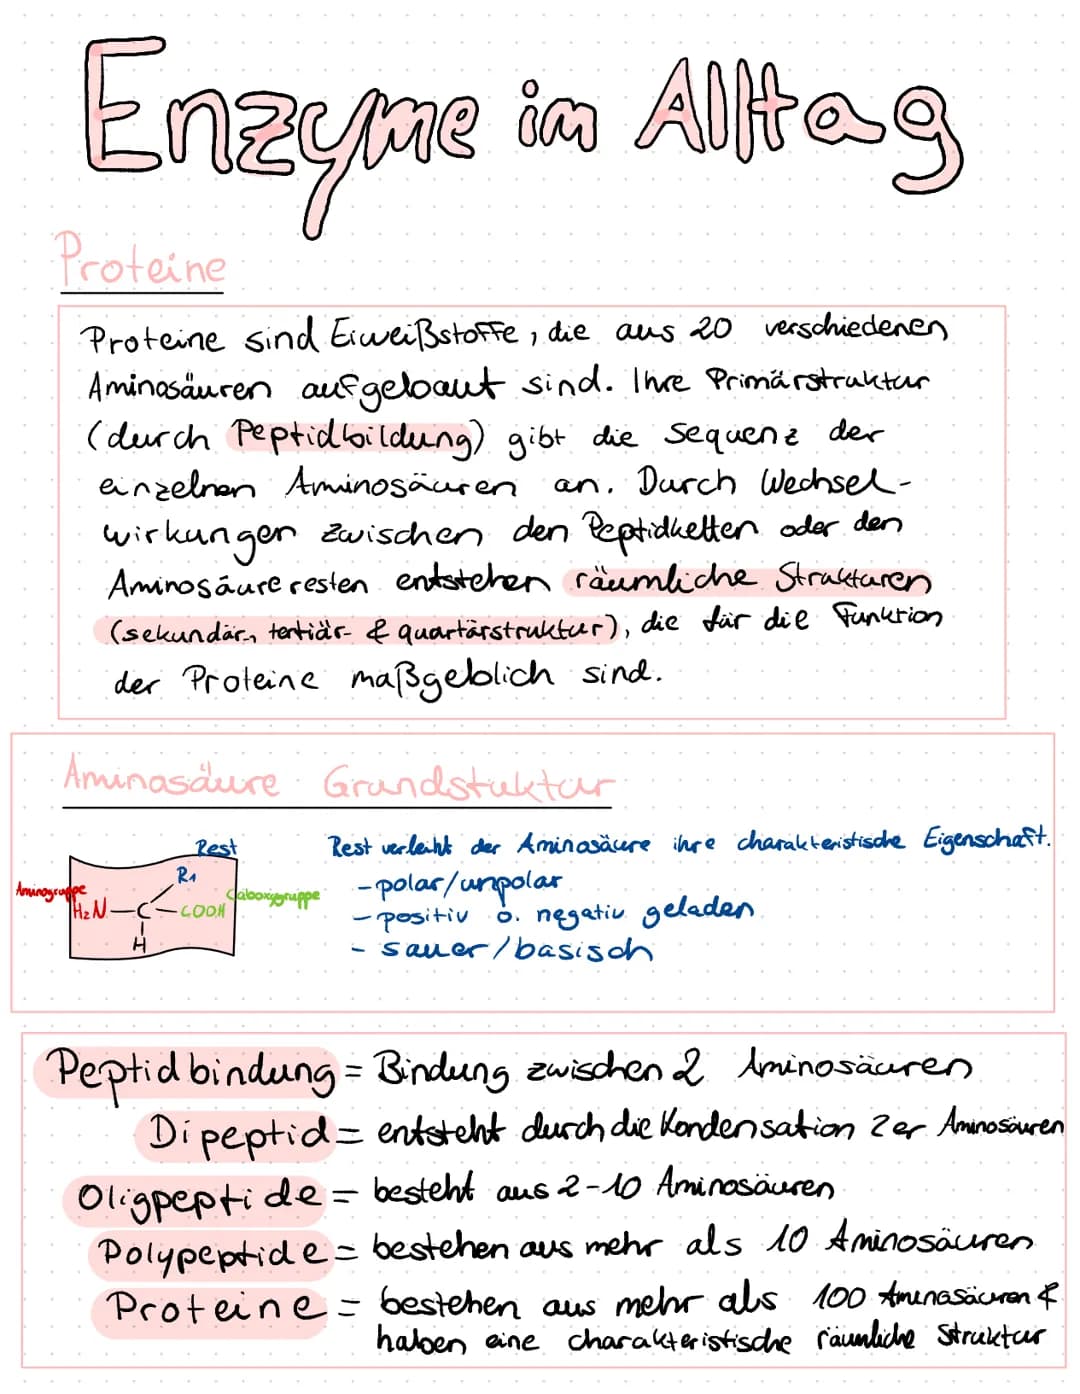 Enzyme im Alltag
Proteine
Proteine sind Eiweißstoffe, die aus 20 verschiedenen
Aminosäuren aufgebaut sind. Ihre Primärstruktur
(durch Peptidbildung) gibt die Sequenz der
einzelnen Aminosäuren an. Durch Wechsel-
wirkungen zwischen den Peptidketten oder den
Aminosäureresten entstehen räumliche Strukturen
(sekundär, tertiär- & quartärstruktur), die für die Funktion
der Proteine maßgeblich sind.
Aminosäure Grundstuktur
Rest
Rest verleiht der Aminosäure ihre charakteristische Eigenschaft.
- polar/unpolar
- positiv o. negativ geladen
- sauer/basisch
Aminogruppe
R1
Caboxygruppe
H2N-C-COOH
H
Peptidbindung = Bindung zwischen 2 Aminosäuren
Dipeptid = entsteht durch die Kondensation 2er Aminosäuren
Oligpeptide = besteht aus 2-10 Aminosäuren
Polypeptide = bestehen aus mehr als 10 Aminosäuren
Proteine = bestehen aus mehr als 100 Aminosäuren &
haben eine charakteristische räumliche Struktur